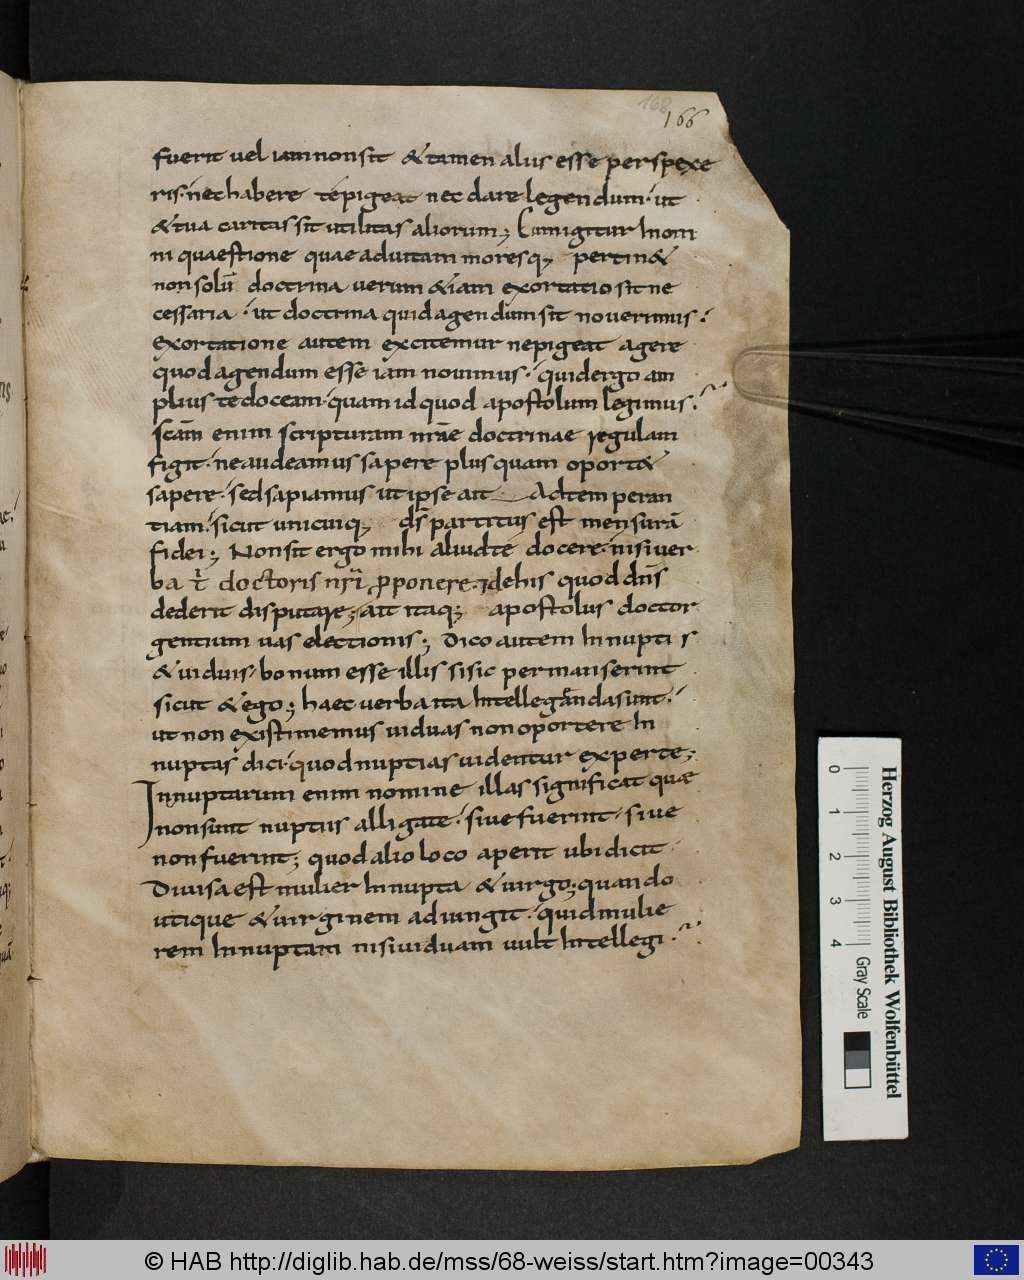 168
166
fuerit uel iam non sit &tamen alus esse perspexe
ris· nec habere te pigeat nec dare legendum· ut
&tua caritas sit utilitas aliorum; Cum igitur Inom
ni quaestione quae ad uitam moresq; pertin&
non solū doctrina uerum &iam exortatio sit ne
cessaria· ut doctrina quid agendum sit nouerimus·
exortatione autem excitemur ne pigeat agere
quod agendum esse iam nouimus· quid ergo am
plius te doceam· quam id quod apostolum legimus·
scām enim scripturam nrāe doctrinae regulam
figit· ne audeamus sapere plus quam oport&
sapere· sed sapiamus ut ipse ait Ad temperan
tiam· sicut unicuiq; ds̄ partitus est mensurā
fidei; Non sit ergo mihi aliud te docere· nisi uer
ba t̄ doctoris nr̄i p̄ponere· &dehis quod dn̄s
dederit disputare; ait itaq; apostolus doctor
gentium uas electionis; Dico autem Innuptis
&uiduis· bonum esse illis si sic permanserint
sicut &ego; haec uerba ita Intellegenda sunt·
ut non existimemus uiduas non oportere In
nuptas dici· quod nuptias uidentur experte;
Innuptarum enim nomine illas significat quae
non sunt nuptiis alligate· siue fuerint· siue
non fuerint; quod alio loco aperit ubi dicit
Diuisa est mulier Innupta &uirgo; quando
utique &uirginem adiungit· quid mulie
rem Innuptam nisi uiduam uult Intellegi·
Herzog August Bibliothek Wolfenbüttel
0 1 2 3 4 Gray Scale
© HAB http://diglib.hab.de/mss/68-weiss/start.htm?image=00343